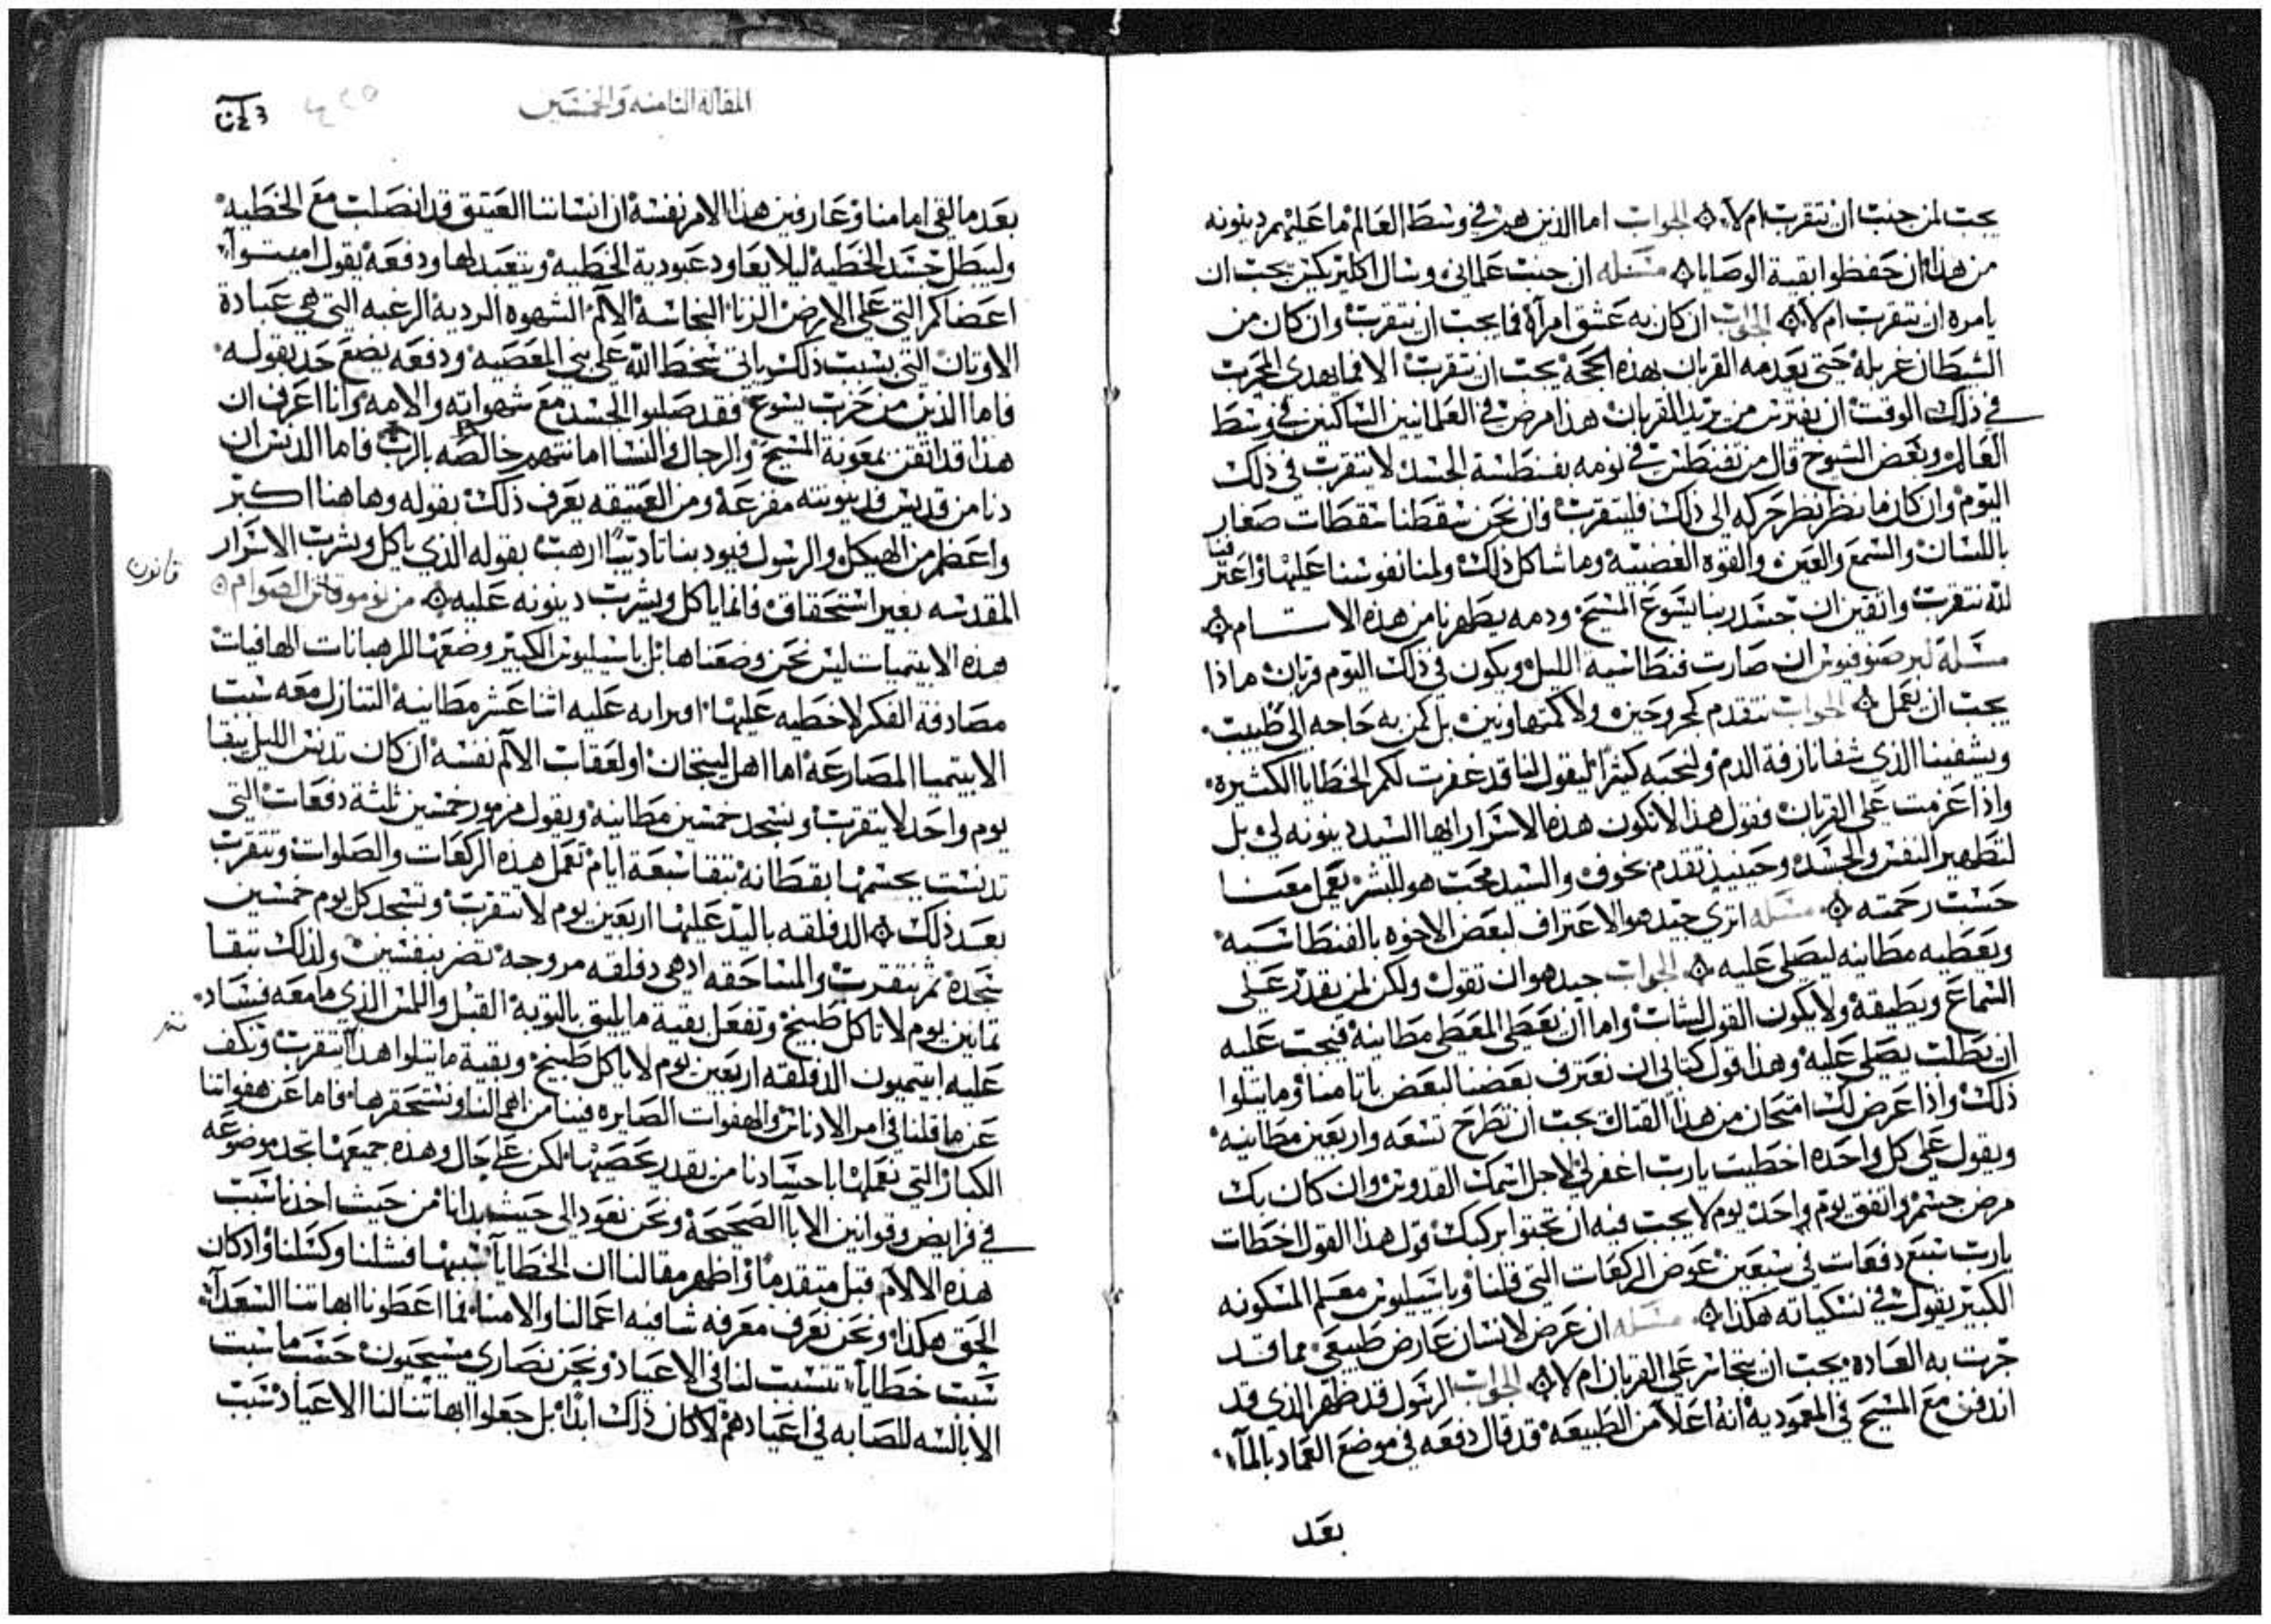 يجب لمن جنب ان يتقرب ام لا ۞ الجواب اما الذين هم في وسط العالم ما عليهم دينونه
من هذا ان حفظوا بقية الوصايا ۞ مسله ان جنب علماني وسال اكليريكي يجب ان
يامره ان يتقرب ام لا ۞ الجواب ان كان به عشق امرآة فما يجب ان يتقرب وان كان من
الشيطان غربلة حتى يعدمه القربان بهذه الحجة يجب ان يتقرب الا فما يهدى المجرب
في ذلك الوقت ان يفترس من يريد القربان هذا مرض في العلمانيين الساكنين في وسط
العالم وبعض الشيوخ قال من تفنطس في نومه بفنطسة الجسد لا يتقرب في ذلك
اليوم وان كان ما ينظر نظر حركه الى ذلك فليتقرب وان نحن سقطنا سقطات صغار
باللسان والسمع والعين والقوه الغضبيه وما شاكل ذلك ولمنا نفوسنا عليها واعترفنا
لله نتقرب واثقين ان جسد ربنا يسوع المسيح ودمه يطهرنا من هذه الاسام ۞
مسله لبرصنوفيوس ان صارت فنطاسيه الليل ويكون في ذلك اليوم قربان ماذا
يجب ان يعمل ۞ الجواب نتقدم كمجروحين ولا كمتهاونين بل كمن به حاجه الى طبيب
ويشفينا الذي شفا نازفة الدم ولنحبه كثيراً ليقول لنا قد غفرت لكم الخطايا الكثيره
واذا عزمت على القربان فقول هذا لا تكون هذه الاسرار ايها السيد دينونه لي بل
لتطهير النفس والجسد وحينيذ تقدم بخوف والسيد محب هو للبشر يعمل معنا
حسب رحمته ۞ مسله اترى جيد هو الاعتراف لبعض الاخوه بالفنطاسيه
ويعطيه مطانيه ليصلي عليه ۞ الجواب جيد هو ان تقول ولكن لمن يقدر على
السماع ويطيقه ولا يكون القول لشاب واما ان يعطي المعطي مطانية فيجب عليه
ان يطلب يصلي عليه وهذا قول كتابي ان نعترف بعضنا لبعض باثامنا وما يتلوا
ذلك واذا عرض لك امتحان من هذا القتال يجب ان تطرح تسعه واربعين مطانيه
ويقول على كل واحده اخطيت يارب اغفر لي لاجل اسمك القدوس وان كان بك
مرض جسم واتفق يوم واحد يوم لا يجب فيه ان تجثوا بركبك قول هذا القول اخطات
يارب سبع دفعات في سبعين عوض الركعات التي قلنا وباسيليوس معلم المسكونه
الكبير يقول في نسكياته هكذا ۞ مسله ان عرض لانسان عارض طبيعي مما قد
جرت به العاده يجب ان يتجاسر على القربان ام لا ۞ الجواب الرسول قد ظهر الذي قد
اندفن مع المسيح في المعمودية انه اعلا من الطبيعه قد قال دفعه في موضع العماد بالمآء
بعد
المقاله الثامنه والخمسين
بعد ما لقى امامنا وعارفين هذا الامر نفسه ان انساننا العتيق قد انصلب مع الخطيه
وليبطل جسد الخطيه ليلا يعاود عبودية الخطيه ويتعبد لها ودفعه يقول اميتوآ
اعضاكم التي على الارض الزنا النجاسة الالم الشهوه الرديه الرغبه التي هي عبادة
الاوثان التي بسبب ذلك ياتي سخط الله على بني المعصيه ودفعه يضع حد بقوله
فاما الذين من حزب يسوع فقد صلبوا الجسد مع شهواته والامه وانا اعرف ان
هذا قد اتقن بمعونة المسيح والرجال والنسا امانتهم خالصه بالرب فاما الدنس ان
دنا من قديس فدينونته مفزعة ومن العتيقه يعرف ذلك بقوله وهاهنا اكبر
واعظم من الهيكل والرسول فيودبنا تاديباً ارهب بقوله الذي ياكل ويشرب الاسرار
المقدسه بغير استحقاق فانما ياكل ويشرب دينونه عليه ۞ من نوموقانن الصوام ۞
قانون
هذه الابيتيميات ليس نحن وضعناها بل باسيليوس الكبير وضعها للرهبانات الهافيات
مصادفة الفكر لا خطيه عليها اوبرايه عليه اثنا عشر مطانيه التنازل معه سبت
الابيتميا المصارعة اما اهل ليتجان اولعقات الالم نفسه ان كان تدنس الليل يبقا
يوم واحد لا يتقرب ويسجد خمسين مطانيه ويقول مزمور خمسين ثلثة دفعات التي
تدنست بجسمها بقطانه تبقا سبعة ايام تعمل هذه الركعات والصلوات وتتقرب
بعد ذلك ۞ الدفلقه باليد عليها اربعين يوم لا تتقرب وتسجد كل يوم خمسين
سجدة ثم تتقرب والمساحقه اذ هي دفلقه مزوجه تضر بنفسين ولذلك تبقا
ثمانين يوم لا تاكل طبيخ وتفعل بقية ما يليق بالتوبه القبل واللمس الذي ما معه فساد
عليه ابيتميون الدفلقه اربعين يوم لا ياكل طبيخ وبقية ما يتلوا هذا تتقرب وتكف
عن ما قلنا في امر الادناس والهفوات الصايره فينا من اهمالنا ونستحقرها فاما عن هفواتنا
الكبار التي نعملها باجسادنا من يقدر يحصيها لكن على حال وهذه جميعها تجد موضوعه
في فرايض وقوانين الابا الصحيحة ونحن نعود الى حيث بدانا من حيث اخذنا سبب
هذه الالام قبل متقدماً واظهر مقالنا ان الخطايآ سببها فشلنا وكسلنا واذ كان
الحق هكذا ونحن نعرف معرفه شافيه اعمالنا والامنا فما اعطونا ابهاتنا السعدآ
سبب خطايا تتسبب لنا في الاعياد ونحن نصارى مسيحيون حسب ما سبب
الابالسه للصابه في اعيادهم لا كان ذلك ابداً بل جعلوا ابهاتنا لنا الاعياد سبب